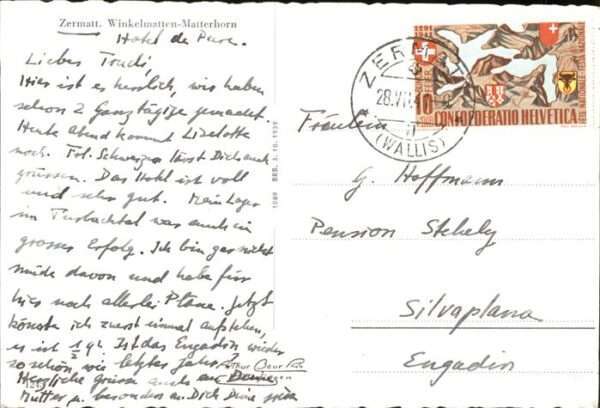 Zermatt. Winkelmatten-Matterhorn
Hotel de Parc.
Liebes Trudi,
Hier ist es herrlich, wir haben
schon 2 Ganztägige gemacht.
Heute Abend kommt Liselotte
noch. Frl. Schweizer lässt Dich auch
grüssen. Das Hotel ist voll
und sehr gut. Mein Lager
im Turbachtal war auch ein
grosser Erfolg. Ich bin gar nicht
müde davon und habe für
hier noch allerlei Pläne. Jetzt
könnte ich zuerst einmal aufstehen,
es ist ½ 9h. Ist das Engadin wieder
so schön wie letztes Jahr?
Herzliche Grüsse auch an Deine
Mutter u. besonders an Dich Deine
ZERMATT
28.VII.41
(WALLIS)
10
CONFOEDERATIO HELVETICA
Fräulein
G. Hoffmann
Pension Stehely
Silvaplana
Engadin